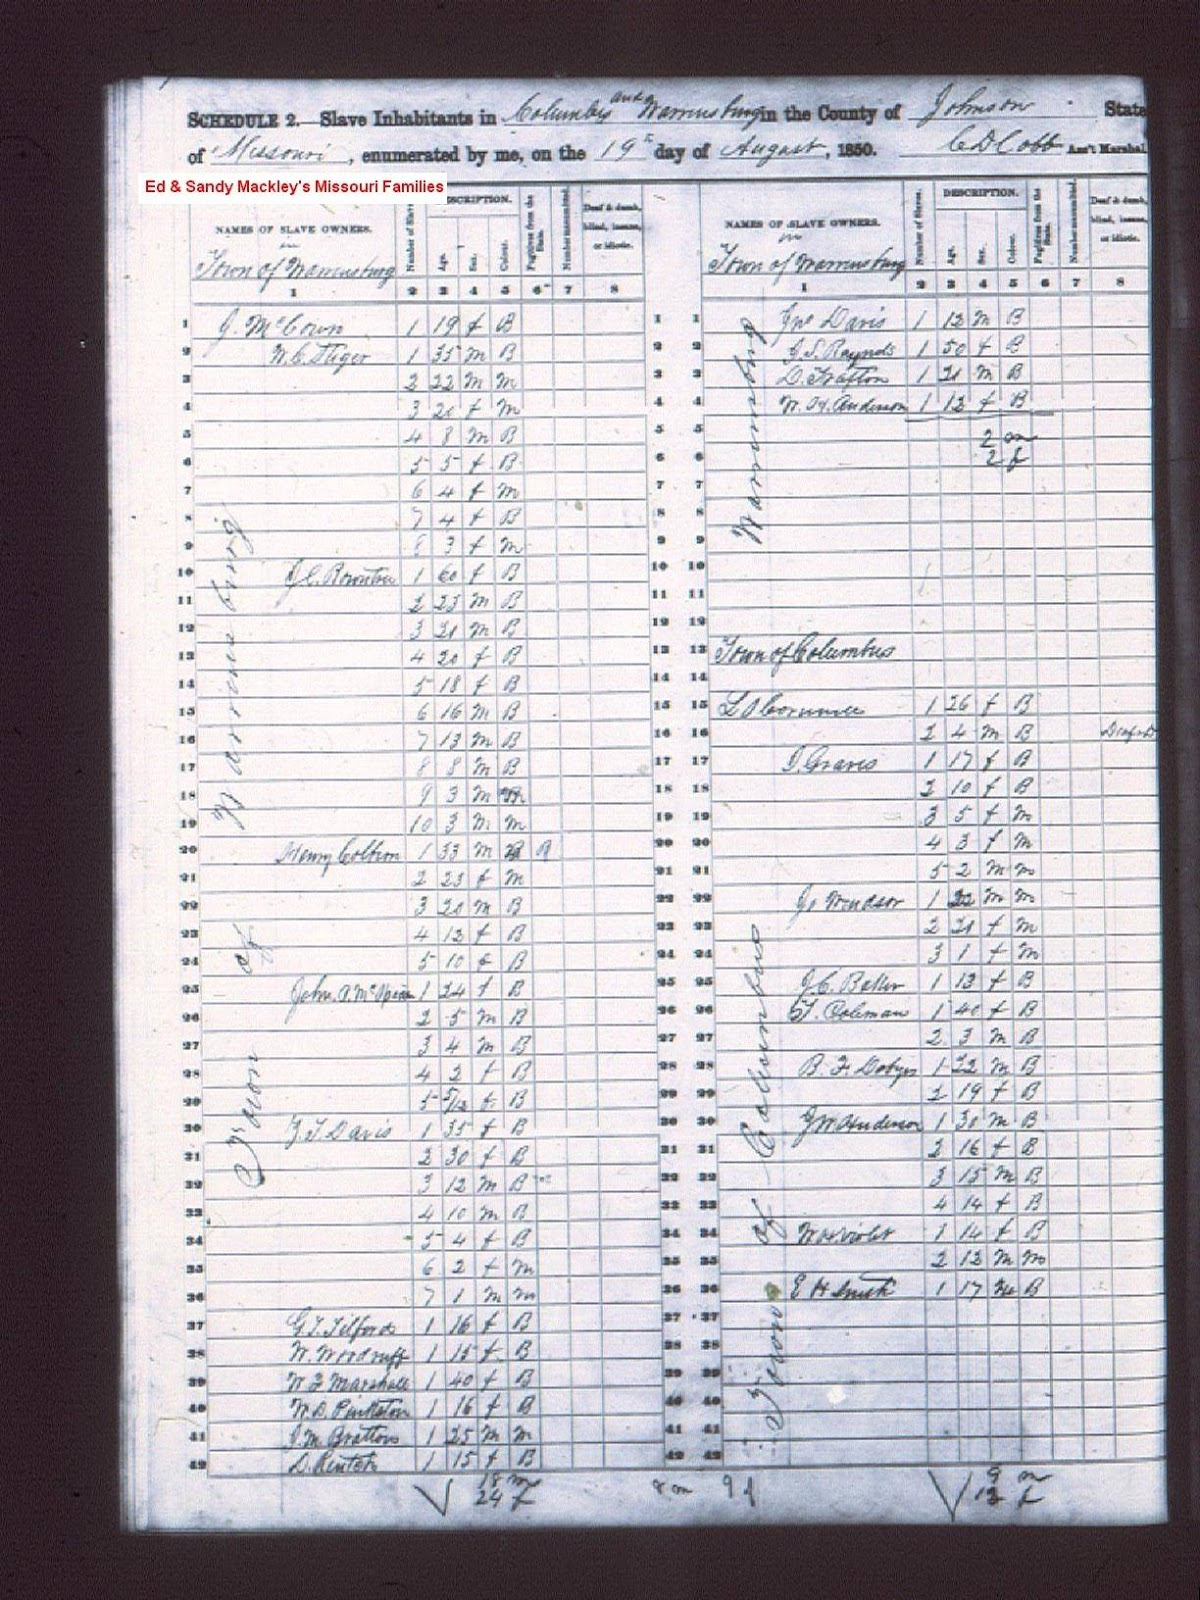 SCHEDULE 2.—Slave Inhabitants in Columbus and Warrensburg in the County of Johnson State
of Missouri, enumerated by me, on the 19th day of August, 1850. C D Cobb Ass't Marshal.
Ed & Sandy Mackley's Missouri Families
NAMES OF SLAVE OWNERS. Number of Slaves. DESCRIPTION. Age. Sex. Colour. Fugitives from the State. Number manumitted. Deaf & dumb, blind, insane, or idiotic.
in
Town of Warrensburg
1 2 3 4 5 6 7 8
1 J. McCown 1 19 f B 1
2 W. C. 1 35 m B 2
3 2 22 m m 3
4 3 20 f m 4
5 4 8 m B 5
6 5 5 f B 6
7 6 4 f m 7
8 7 4 f B 8
9 8 3 f m 9
10 J. C. Rowntree 1 60 f B 10
11 2 23 m B 11
12 3 21 m B 12
13 4 20 f B 13
14 5 18 f B 14
15 6 16 m B 15
16 7 13 m B 16
17 8 8 m B 17
18 9 3 m 18
19 10 3 m m 19
20 Henry Colburn 1 33 m B 20
21 2 23 f m 21
22 3 20 m B 22
23 4 12 f B 23
24 5 10 f B 24
25 John A. 1 24 f B 25
26 2 5 m B 26
27 3 4 m B 27
28 4 2 f B 28
29 5 5/12 f B 29
30 J. T. Davis 1 35 f B 30
31 2 30 f B 31
32 3 12 m B 32
33 4 10 m B 33
34 5 4 f B 34
35 6 2 f m 35
36 7 1 m m 36
37 G. T. Tilford 1 16 f B 37
38 W. Woodruff 1 15 f B 38
39 W Z Marshall 1 40 f B 39
40 W. D. Pinkston 1 16 f B 40
41 J. M. Bratton 1 25 m m 41
42 D. 1 15 f B 42
18 m
24 f
Town of Warrensburg
8 m 9 f
NAMES OF SLAVE OWNERS. Number of Slaves. DESCRIPTION. Age. Sex. Colour. Fugitives from the State. Number manumitted. Deaf & dumb, blind, insane, or idiotic.
in
Town of Warrensburg
1 2 3 4 5 6 7 8
1 Jno Davis 1 12 m B
2 J. S. Raynolds 1 50 f B
3 D. Grafton 1 21 m B
4 W. H. Anderson 1 12 f B
5 2 m
6 2 f
7
8
9
10
11
12
13 Town of Columbus
14
15 1 26 f B
16 2 4 m B
17 J. Graves 1 17 f B
18 2 10 f B
19 3 5 f m
20 4 3 f m
21 5 2 m m
22 Windsor 1 22 m m
23 2 21 f m
24 3 1 f m
25 J. C. Baker 1 13 f B
26 T. Coleman 1 40 f B
27 2 3 m B
28 B. F. Dobyns 1 22 m B
29 2 19 f B
30 J W Anderson 1 30 m B
31 2 16 f B
32 3 15 m B
33 4 14 f B
34 W H Violet 1 14 f B
35 2 12 m m
36 E H Smith 1 17 m B
37
38
39
40
41
42
9 m
12 f
Warrensburg
Town of Columbus